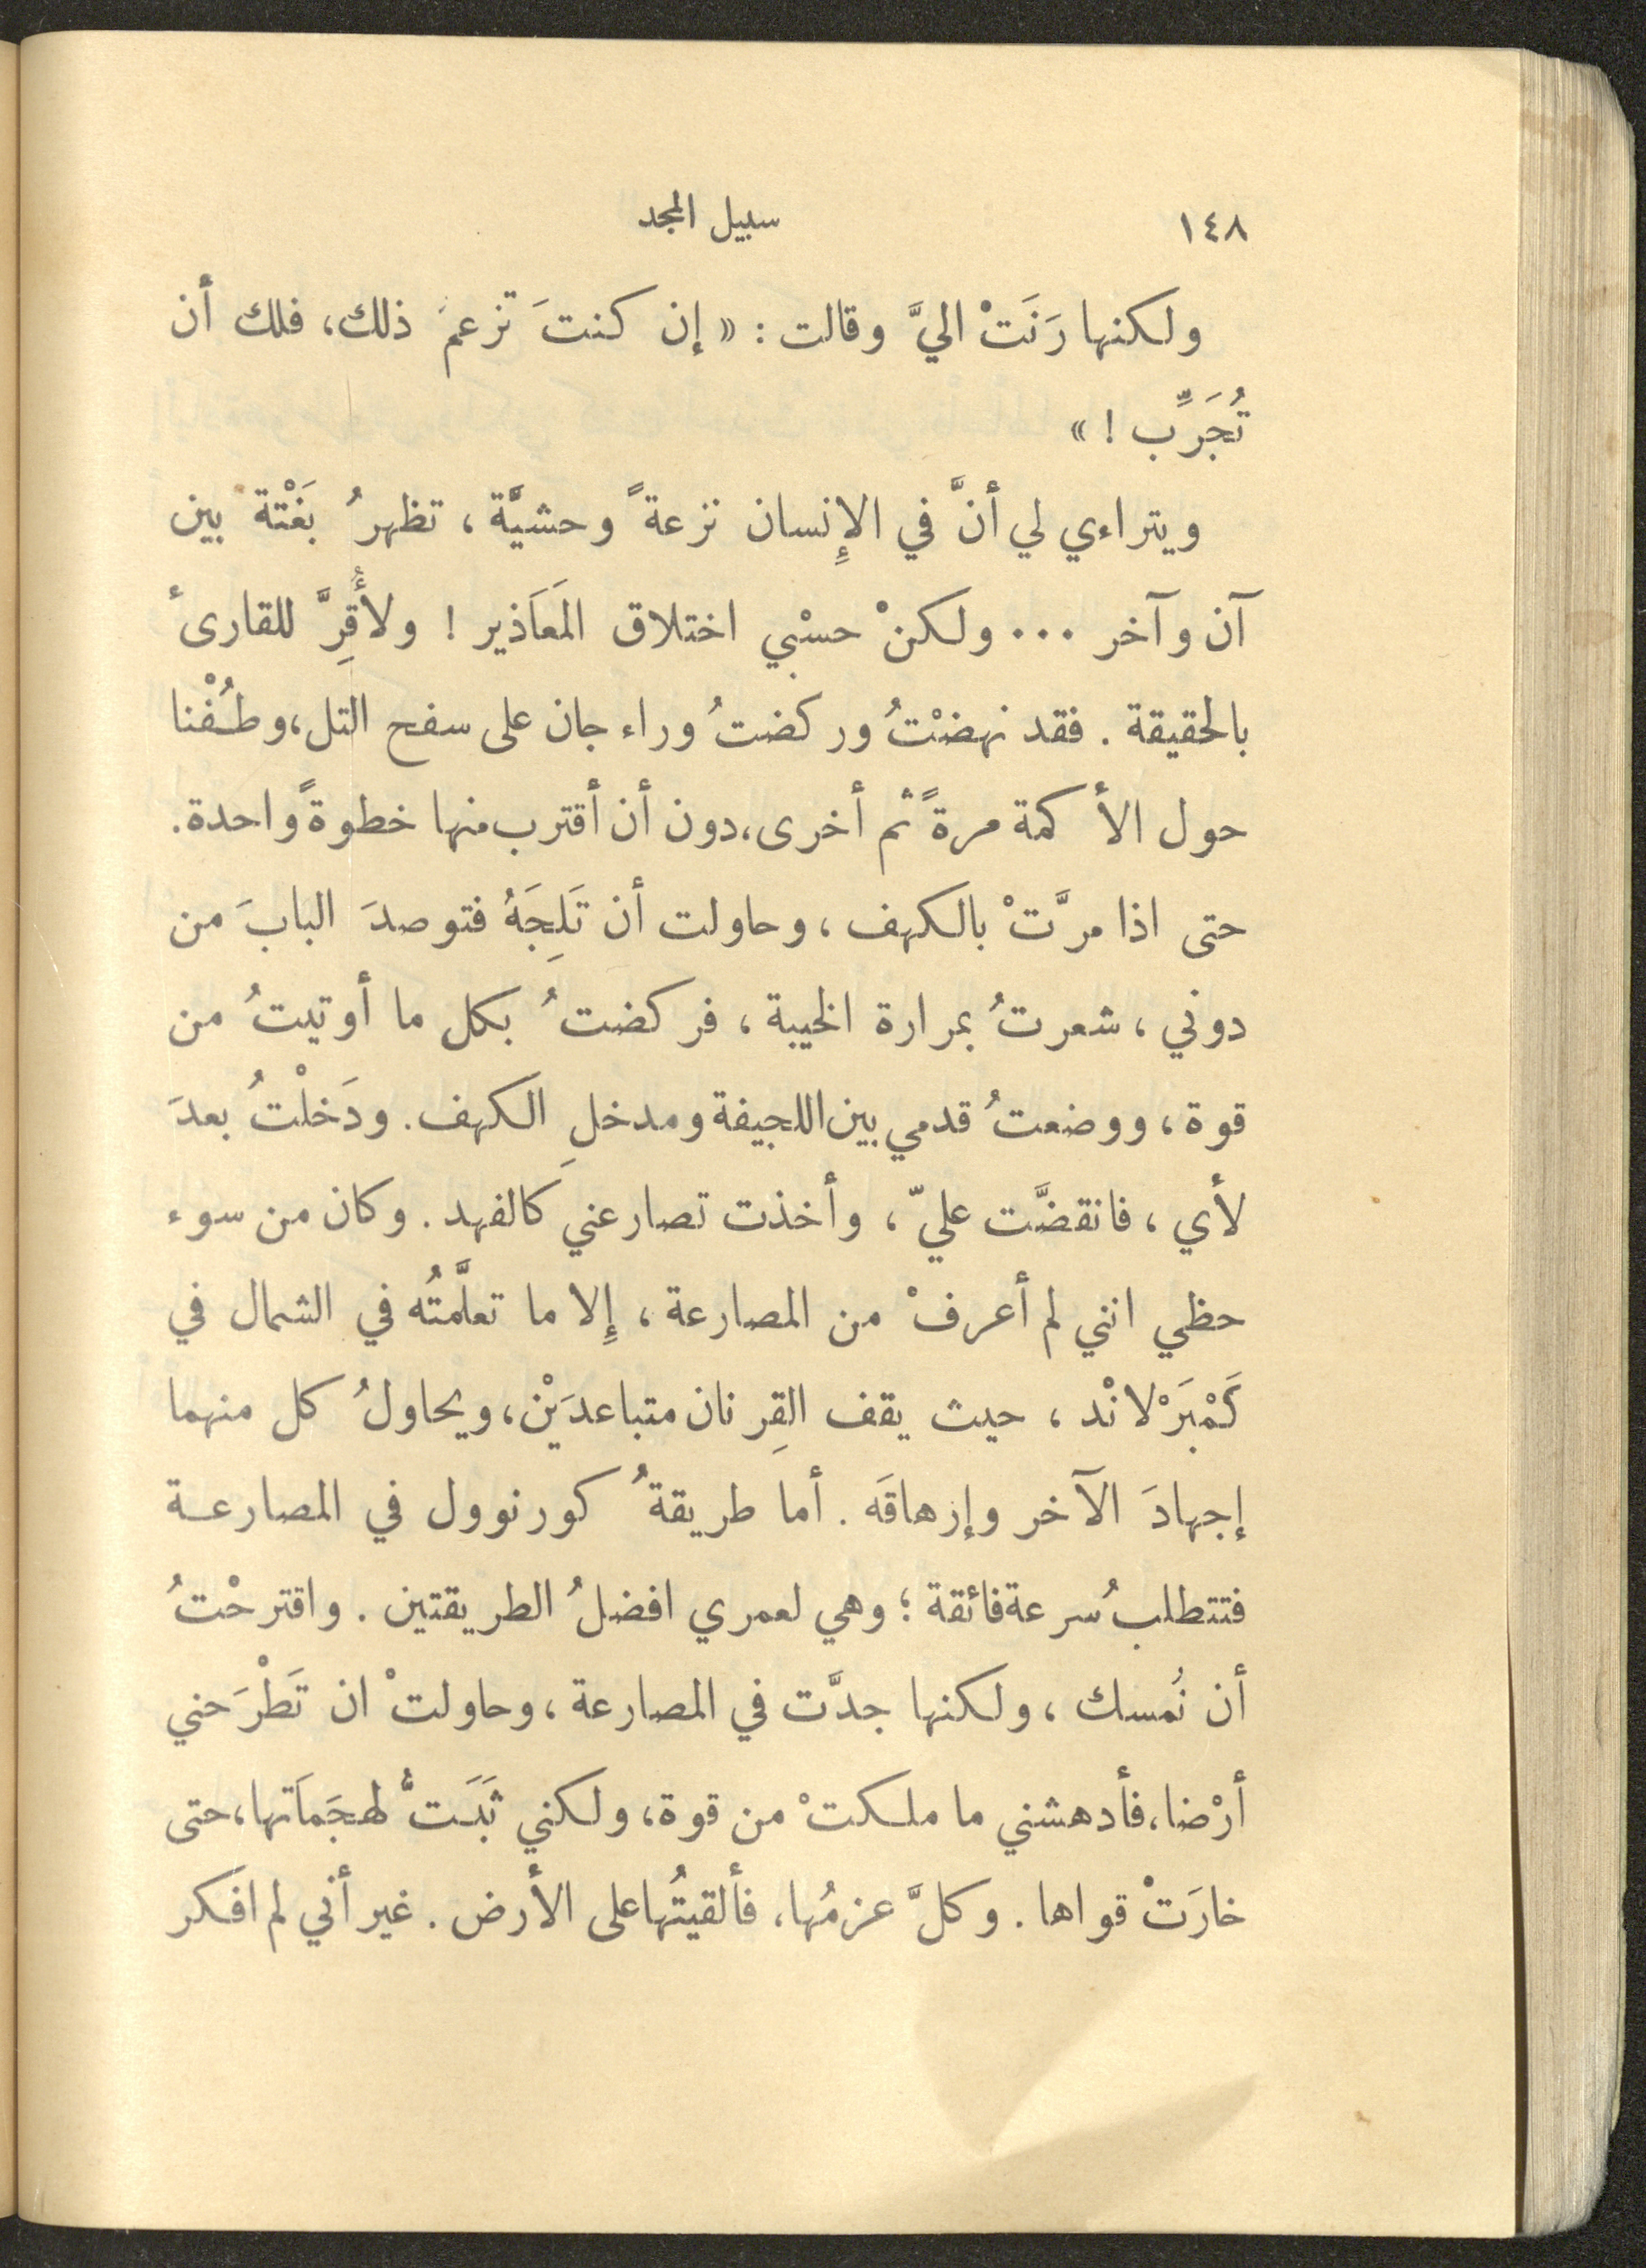 ١٤٨ سبيل المجد
ولكنها رَنَتْ اليَّ وقالت : « إن كنتَ تزعمُ ذلك، فلك أن
تُجَرِّب ! »
ويتراءي لي أنَّ في الإِنسان نزعةً وحشيَّة ، تظهرُ بَغْتة بين
آن وآخر ... ولكنْ حسْبي اختلاق المَعَاذير ! ولأُقِرَّ للقارىء
بالحقيقة . فقد نهضْتُ وركضتُ وراء جان على سفح التل، وطُفْنا
حول الأكمة مرةً ثم أخرى، دون أن أقترب منها خطوةً واحدة.
حتى اذا مرَّتْ بالكهف ، وحاولت أن تَلِجَهُ فتوصدَ البابَ من
دوني ، شعرتُ بمرارة الخيبة ، فركضتُ بكل ما أوتيتُ من
قوة ، ووضعتُ قدمي بين اللجيفة ومدخلِ الكهف. ودَخلْتُ بعدَ
لأي ، فانقضَّت عليّ ، وأخذت تصارعني كالفهد . وكان من سوء
حظي انني لم أعرفْ من المصارعة ، إِلا ما تعلَّمتُه في الشمال في
كَمْبَرْلانْد ، حيث يقف القِرنان متباعدَيْن، ويحاولُ كل منهما
إجهادَ الآخر وإزهاقَه . أما طريقةُ كورنوول في المصارعة
فتتطلبُ سرعة فائقة ؛ وهي لعمري افضلُ الطريقتين . واقترحْتُ
أن نُمسك ، ولكنها جدَّت في المصارعة ، وحاولتْ ان تَطْرَحني
أرْضا، فأدهشني ما ملكتْ من قوة، ولكني ثَبَتُّ لهجَمَاتها، حتى
خارَتْ قواها . وكلَّ عزمُها، فألقيتُها على الأرض . غير أني لم افكر